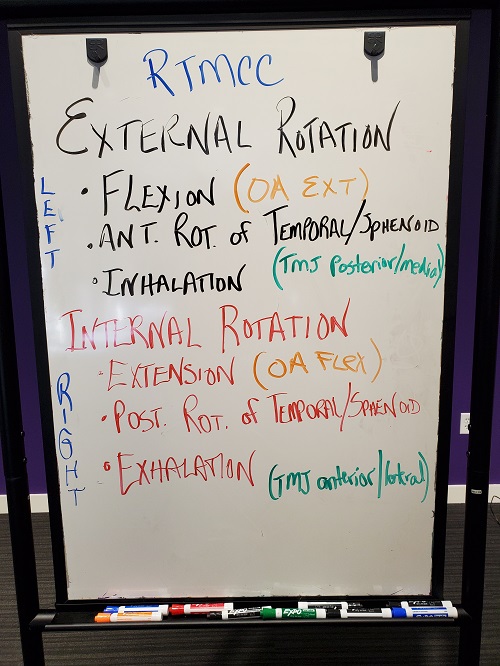 RTMCC
EXTERNAL ROTATION
LEFT
• FLEXION (OA EXT)
• ANT. ROT. of TEMPORAL/SPHENOID
• INHALATION (TMJ Posterior/medial)
INTERNAL ROTATION
RIGHT
• EXTENSION (OA FLEX)
• POST. ROT. of TEMPORAL/SPHENOID
• EXHALATION (TMJ anterior/lateral)
EXPO